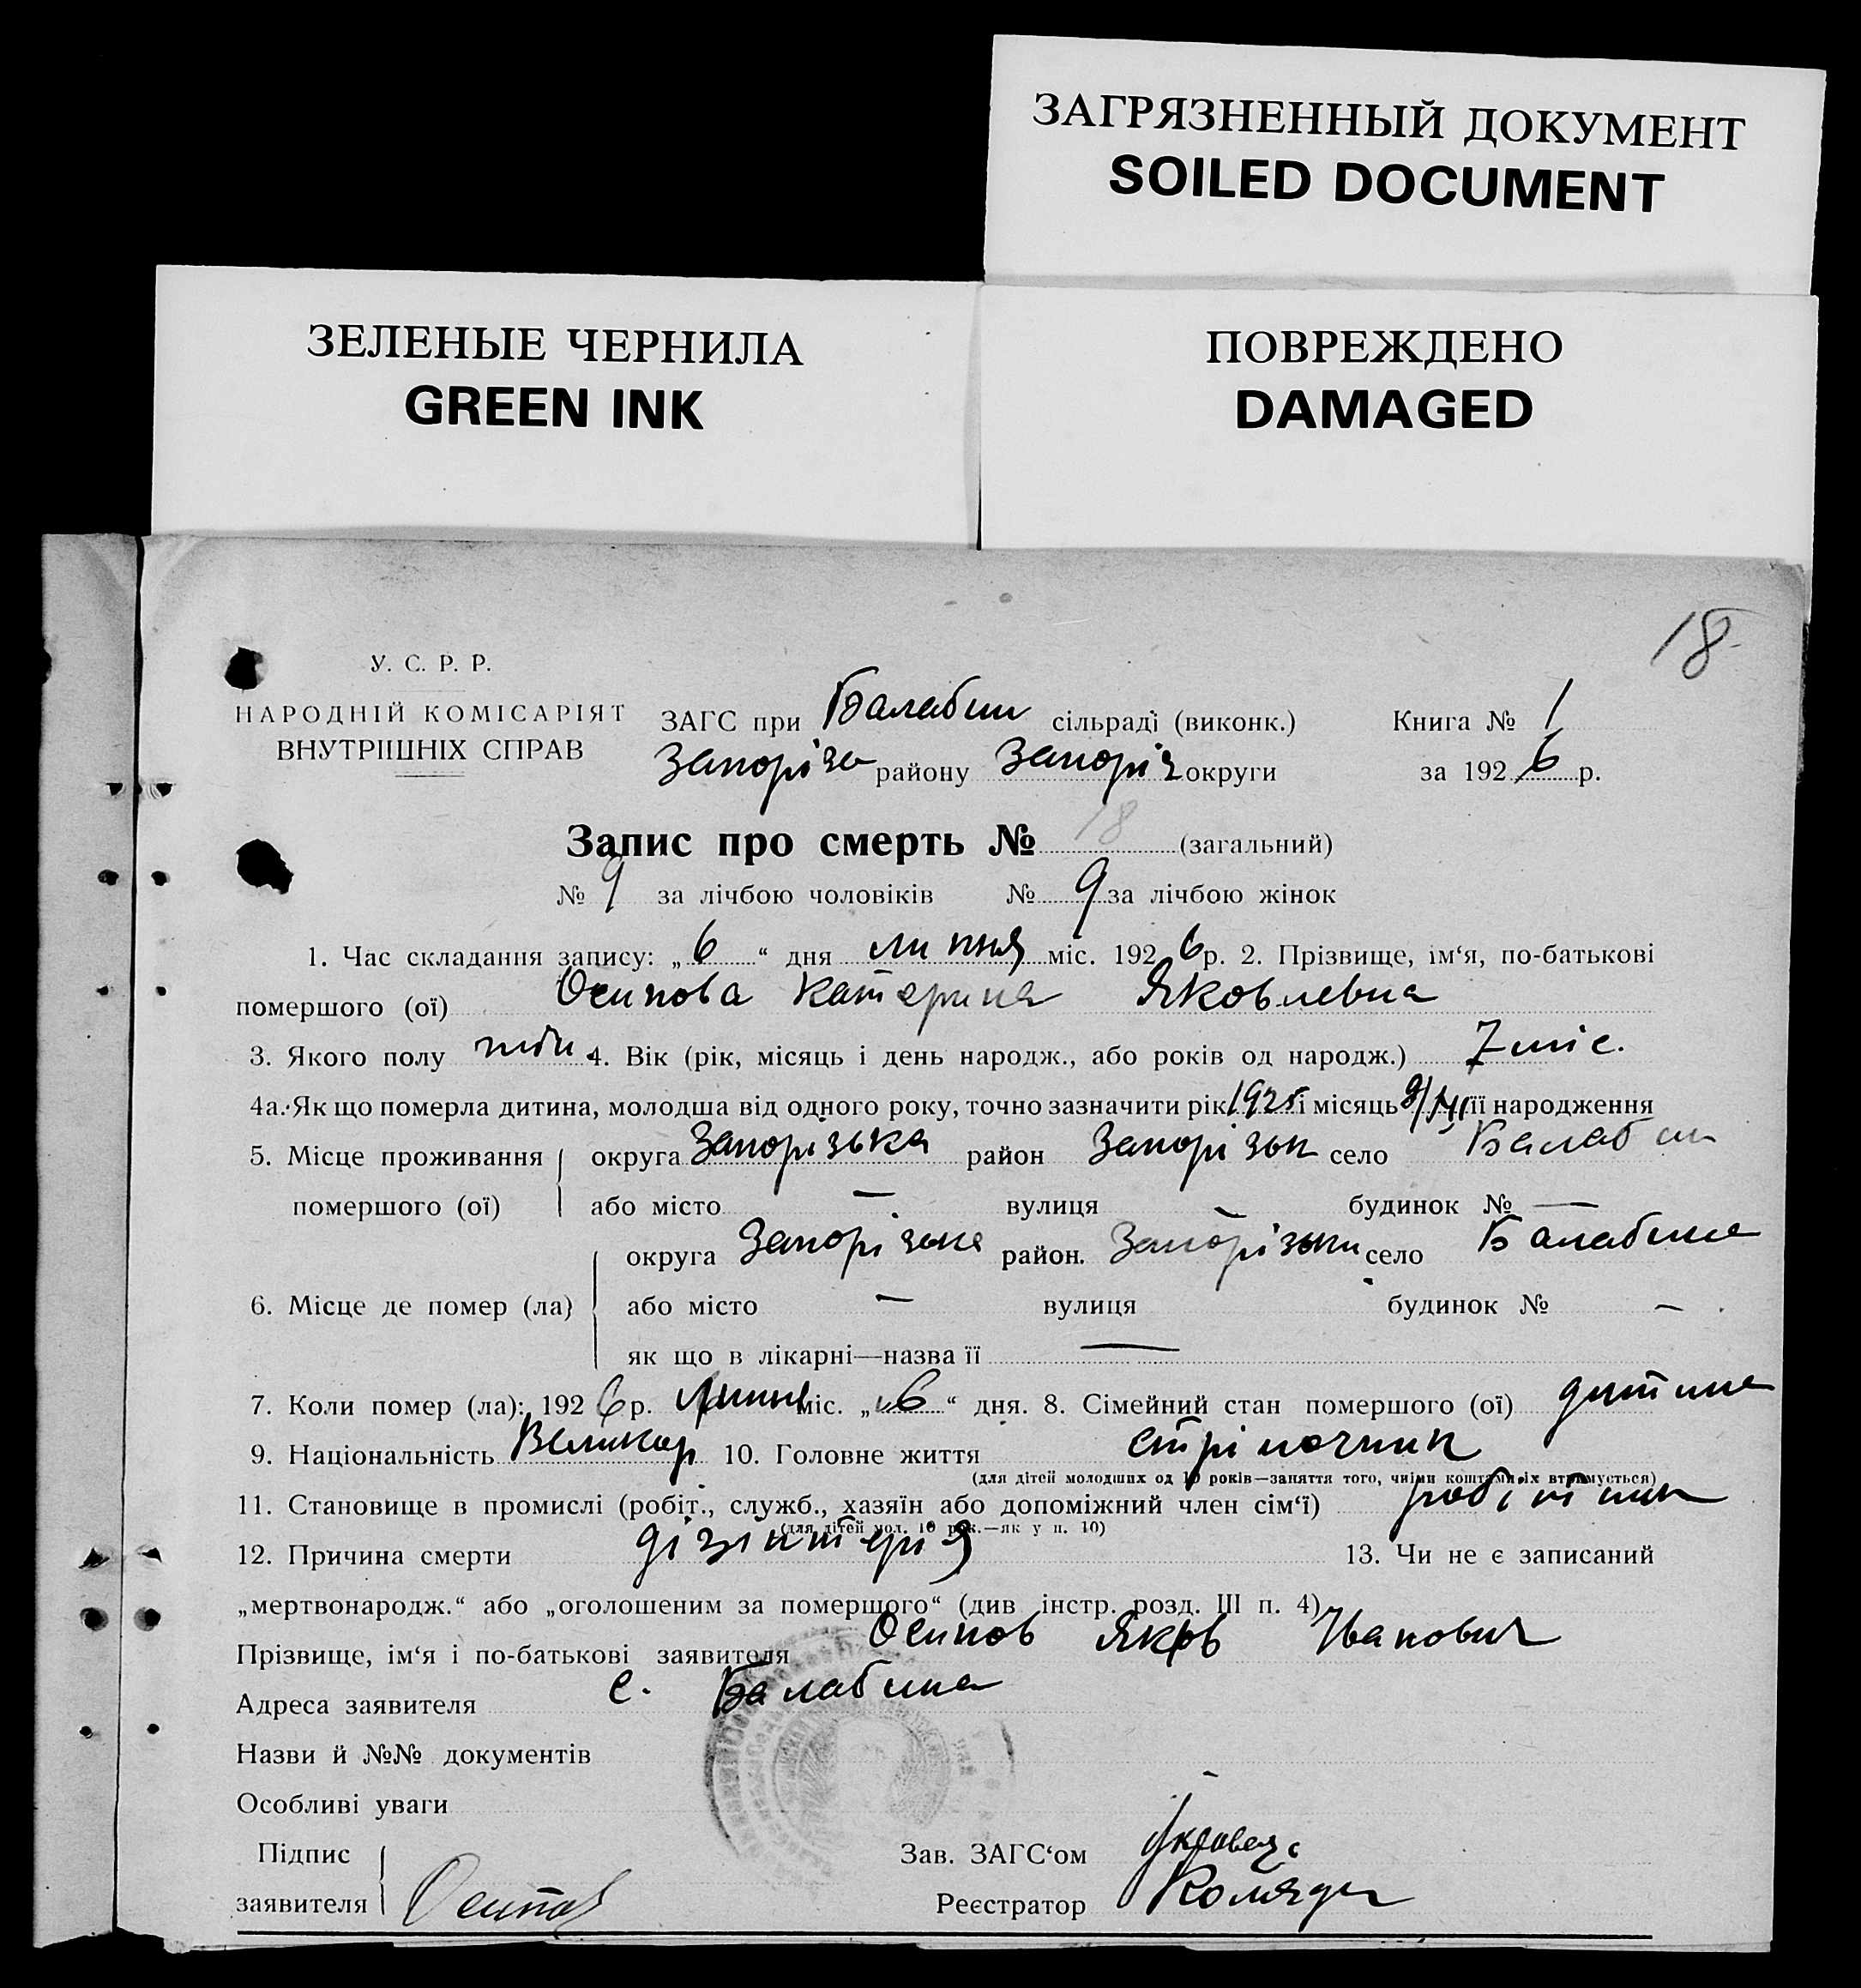 ЗАГРЯЗНЕННЫЙ ДОКУМЕНТ
SOILED DOCUMENT
ЗЕЛЕНЫЕ ЧЕРНИЛА
GREEN INK
ПОВРЕЖДЕНО
DAMAGED
18
У. С. Р. Р.
НАРОДНІЙ КОМІСАРІЯТ
ВНУТРІШНІХ СПРАВ
ЗАГС при Балабин сільраді (виконк.) Книга № 1
Запорізь району Запоріз округи за 1926 р.
Запис про смерть № 18 (загальний)
№ 9 за лічбою чоловіків № 9 за лічбою жінок
1. Час складання запису: „6“ дня липня міс. 1926 р. 2. Прізвище, ім‘я, по-батькові
помершого (ої) Осипова Катерина Яковлевна
3. Якого полу 4. Вік (рік, місяць і день народж., або років од народж.) 7 міс.
4а. Як що померла дитина, молодша від одного року, точно зазначити рік 1925 і місяць її народження
5. Місце проживання округа Запорізька район Запорізьк село Балабин
помершого (ої) або місто — вулиця — будинок № —
округа Запорізька район. Запорізьки село Балабина
6. Місце де помер (ла) або місто — вулиця будинок № —
як що в лікарні—назва її —
7. Коли помер (ла): 1926 р. Липня міс. „6“ дня. 8. Сімейний стан помершого (ої) дитина
9. Національність Великор 10. Головне життя стрілочник
(для дітей молодших од 10 років—заняття того, чиїми коштами їх втримується)
11. Становище в промислі (робіт., служб., хазяїн або допоміжний член сім‘ї) робітник
(для дітей мол. 10 рок.—як у п. 10)
12. Причина смерти дізінтерія 13. Чи не є записаний
„мертвонародж.“ або „оголошеним за помершого“ (див інстр. розд. III п. 4)
Прізвище, ім‘я і по-батькові заявителя Осипов Яков Иванович
Адреса заявителя с. Балабина
Назви й №№ документів
Особливі уваги
Підпис Зав. ЗАГС‘ом
заявителя Осипов Реєстратор Коляда